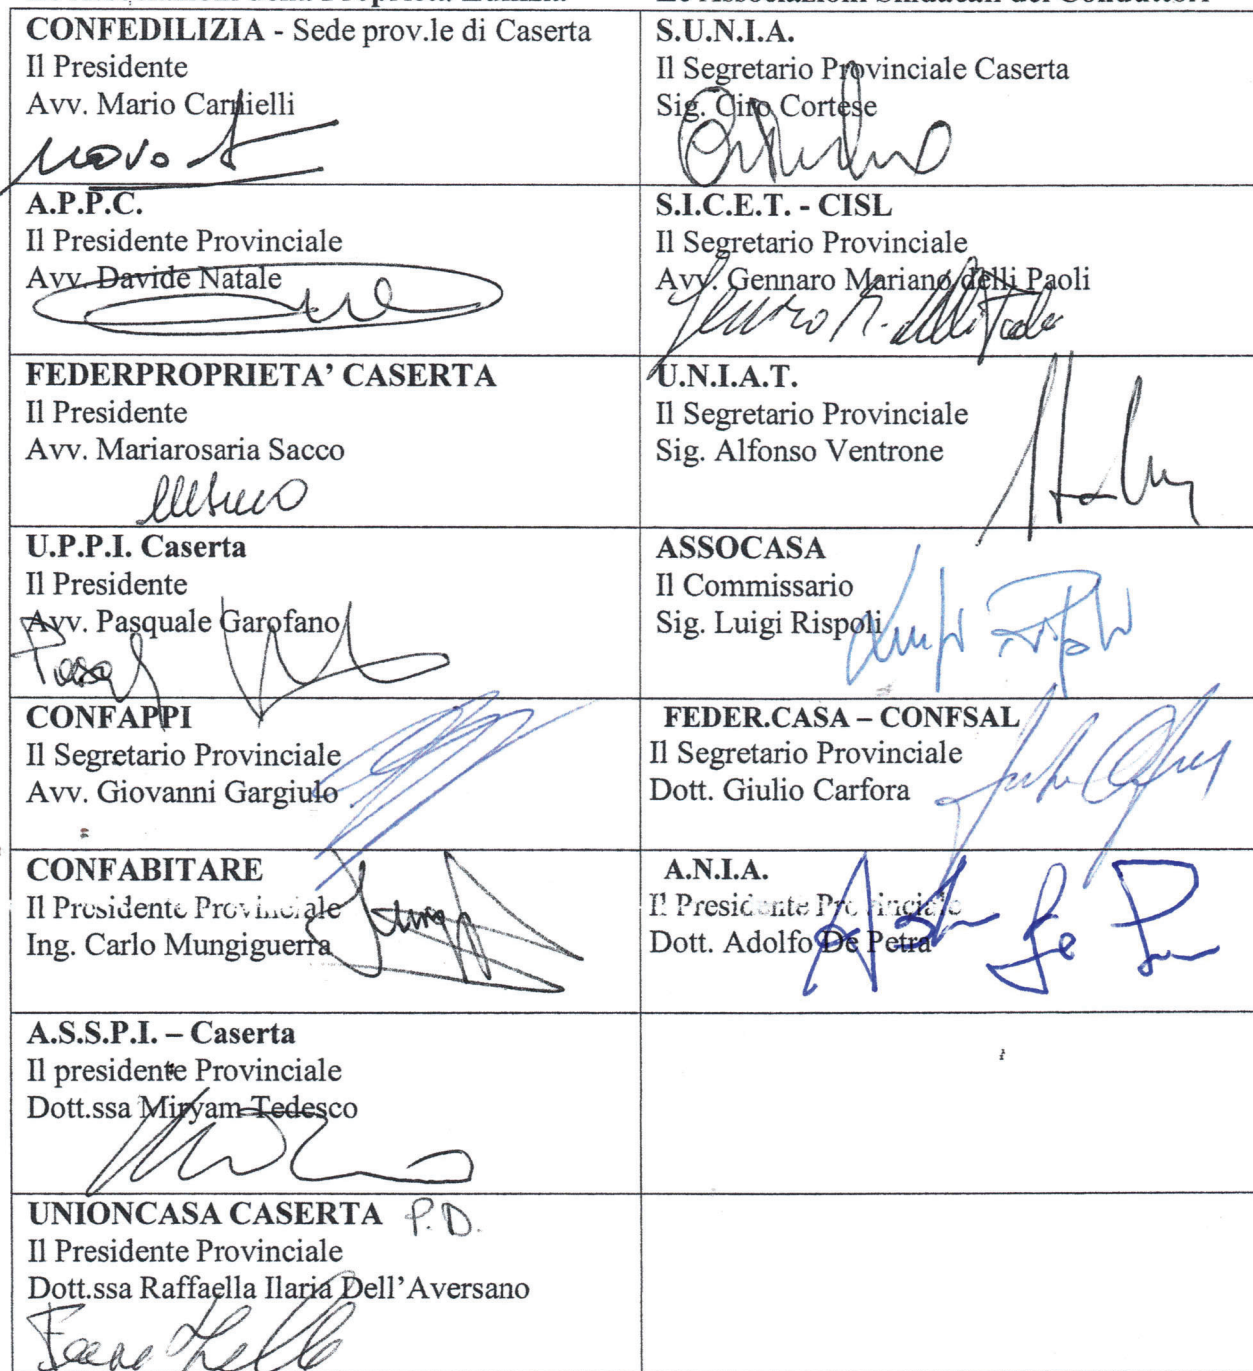 CONFEDILIZIA - Sede prov.le di Caserta
Il Presidente
Avv. Mario Carnielli
S.U.N.I.A.
Il Segretario Provinciale Caserta
Sig. Ciro Cortese
A.P.P.C.
Il Presidente Provinciale
Avv. Davide Natale
S.I.C.E.T. - CISL
Il Segretario Provinciale
Avv. Gennaro Mariano delli Paoli
FEDERPROPRIETA’ CASERTA
Il Presidente
Avv. Mariarosaria Sacco
U.N.I.A.T.
Il Segretario Provinciale
Sig. Alfonso Ventrone
U.P.P.I. Caserta
Il Presidente
Avv. Pasquale Garofano
ASSOCASA
Il Commissario
Sig. Luigi Rispoli
CONFAPPI
Il Segretario Provinciale
Avv. Giovanni Gargiulo
FEDER.CASA – CONFSAL
Il Segretario Provinciale
Dott. Giulio Carfora
CONFABITARE
Il Presidente Provinciale
Ing. Carlo Mungiguerra
A.N.I.A.
Il Presidente Provinciale
Dott. Adolfo De Petra
A.S.S.P.I. – Caserta
Il presidente Provinciale
Dott.ssa Miryam Tedesco
UNIONCASA CASERTA P.D.
Il Presidente Provinciale
Dott.ssa Raffaella Ilaria Dell’Aversano